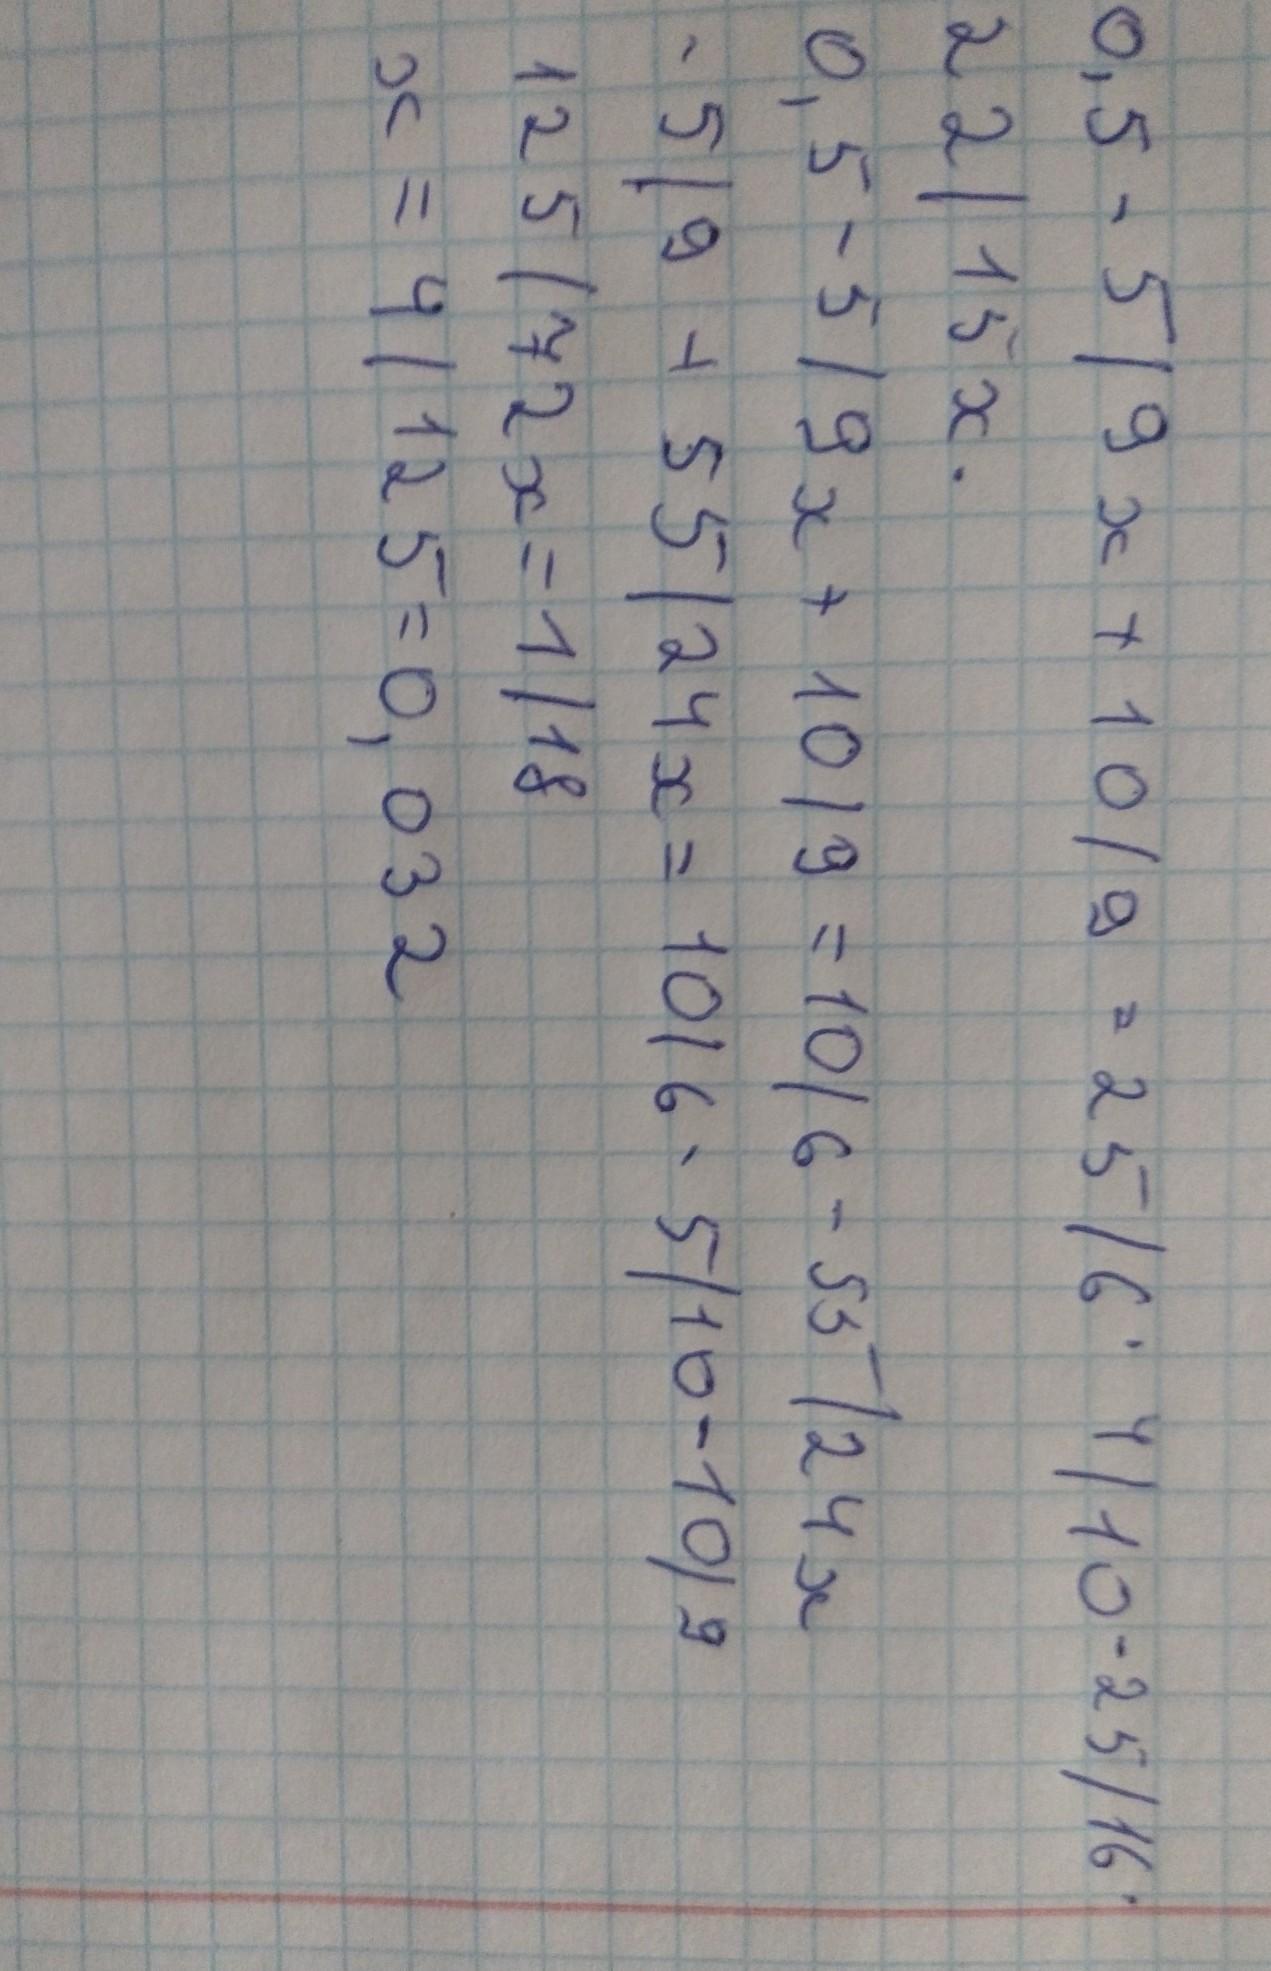 0,5 - 5/9x + 10/9 = 25/6 · 4/10 - 25/16 ·
22/15x.
0,5 - 5/9x + 10/9 = 10/6 - 55/24x
- 5/9 + 55/24x = 10/6 - 5/10 - 10/9
125/72x = 1/18
x = 4/125 = 0,032